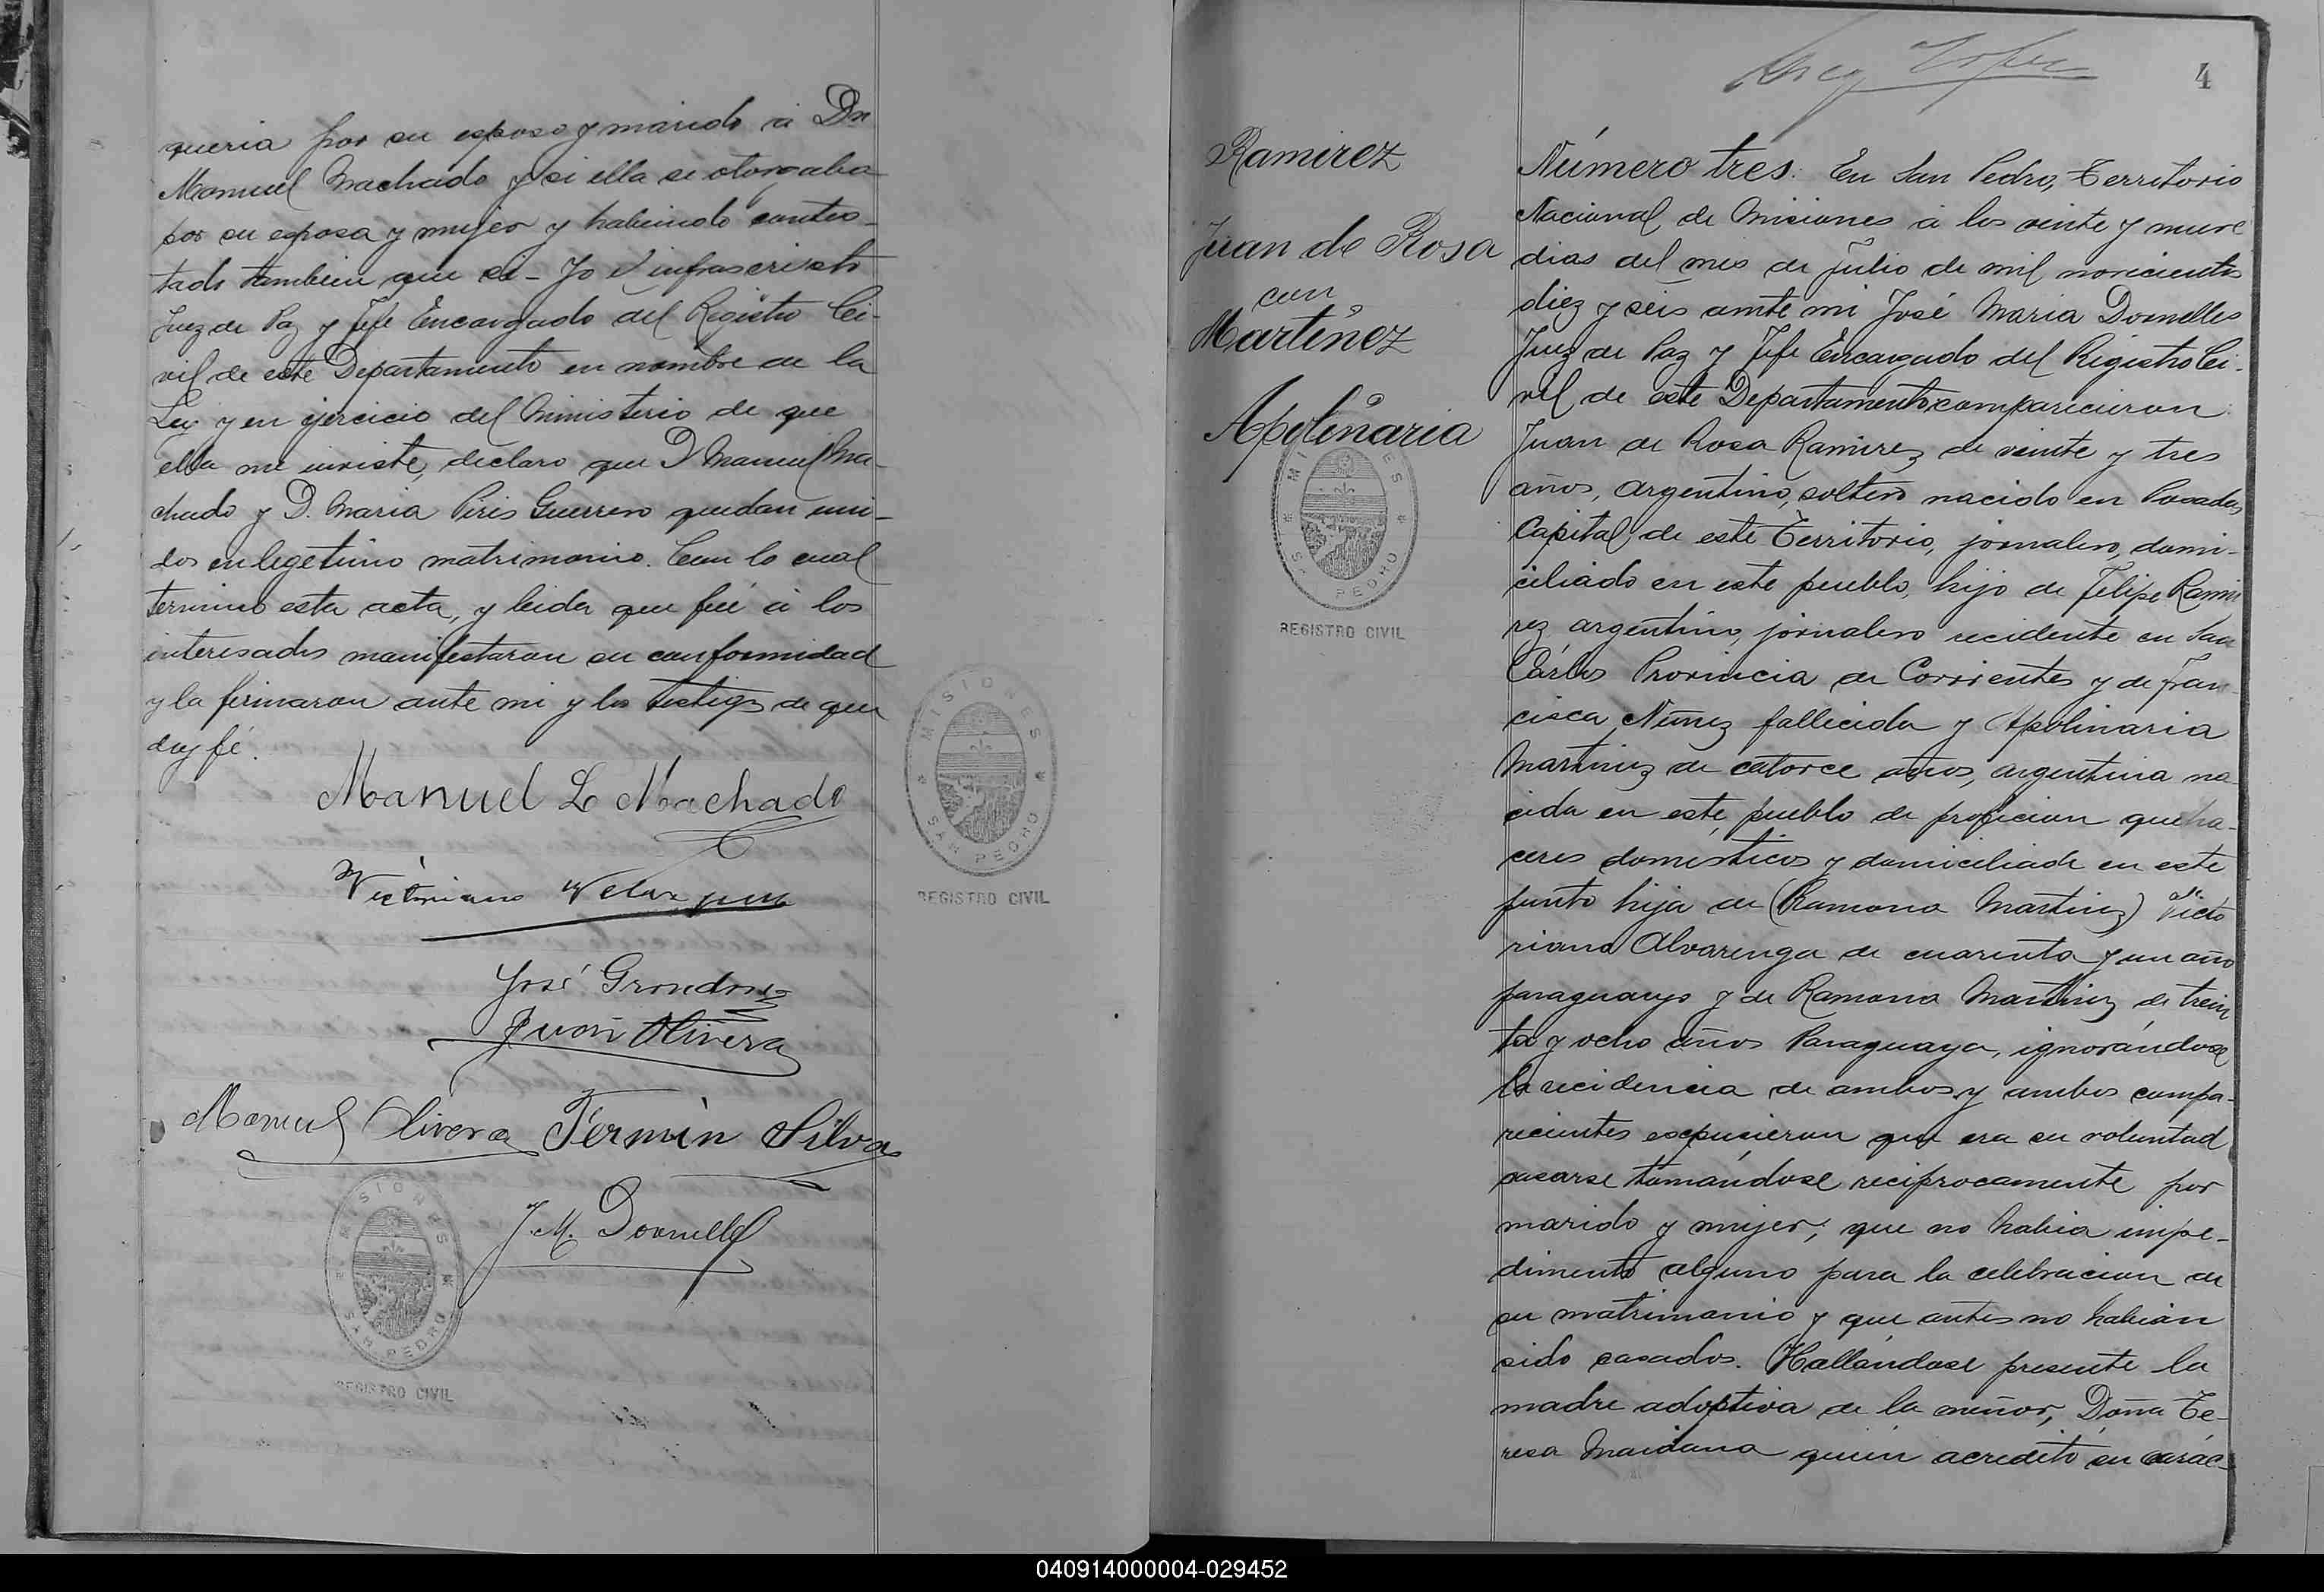 queria por su esposo y marido á Dn
Manuel Machado y si ella se otorgaba
por su esposa y mujer y habiendo contes-
tado tambien que si - Yo el infrascristo
Juez de Paz y Jefe Encargado del Registro Ci-
vil de este Departamento en nombre de la
Ley y en ejercicio del Ministerio de que
ella me inviste, declaro que D Manuel Ma-
chado y D. Maria Piris Guerrero quedan uni-
dos en legetimo matrimonio. Con lo cual
termino esta acta, y leida que fué á los
interesados manifestaron su conformidad
y la firmaron ante mi y los testigos de que
doy fé.
Manuel L Machado
Victoriano Velazquez
José Grondona
Juan Olivera
Manuel Olivera Fermin Silva
J. M. Dornelles
MISIONES
SAN PEDRO
REGISTRO CIVIL
MISIONES
SAN PEDRO
REGISTRO CIVIL
4
Ramirez
Juan de Rosa
con
Martinez
Apolinaria
MISIONES
SAN PEDRO
REGISTRO CIVIL
Número tres. En San Pedro, Territorio
Nacional de Misiones á los veinte y nueve
dias del mes de Julio de mil novecientos
diez y seis ante mi José Maria Dornelles
Juez de Paz y Jefe Encargado del Registro Ci-
vil de este Departamento comparecieron:
Juan de Rosa Ramirez de veinte y tres
años, argentino, soltero nacido en Posadas
Capital de este Territorio, jornalero, domi-
ciliado en este pueblo, hijo de Felipe Rami
rez argentino, jornalero recidente en San
Cárlos Provincia de Corrientes y de Fran-
cisca Nuñez fallecida y Apolinaria
Martinez de catorce años, argentina na-
cida en este pueblo de profecion queha-
ceres domésticos y domiciliada en este
punto hija de (Ramona Martinez) Victo
riano Alvarenga de cuarenta y un año
paraguayo y de Ramona Martinez de trein
ta y ocho años Paraguaya, ignorándose
la recidencia de ambos y ambos compa-
recientes escpusieron que era su voluntad
casarse tomándose reciprocamente por
marido y mujer; que no habia impe-
dimento alguno para la celebracion de
su matrimonio y que antes no habian
sido casados. Hallándose presente la
madre adoptiva de la menor, Doña Te-
resa Maidana quien acreditó su carác-
040914000004-029452